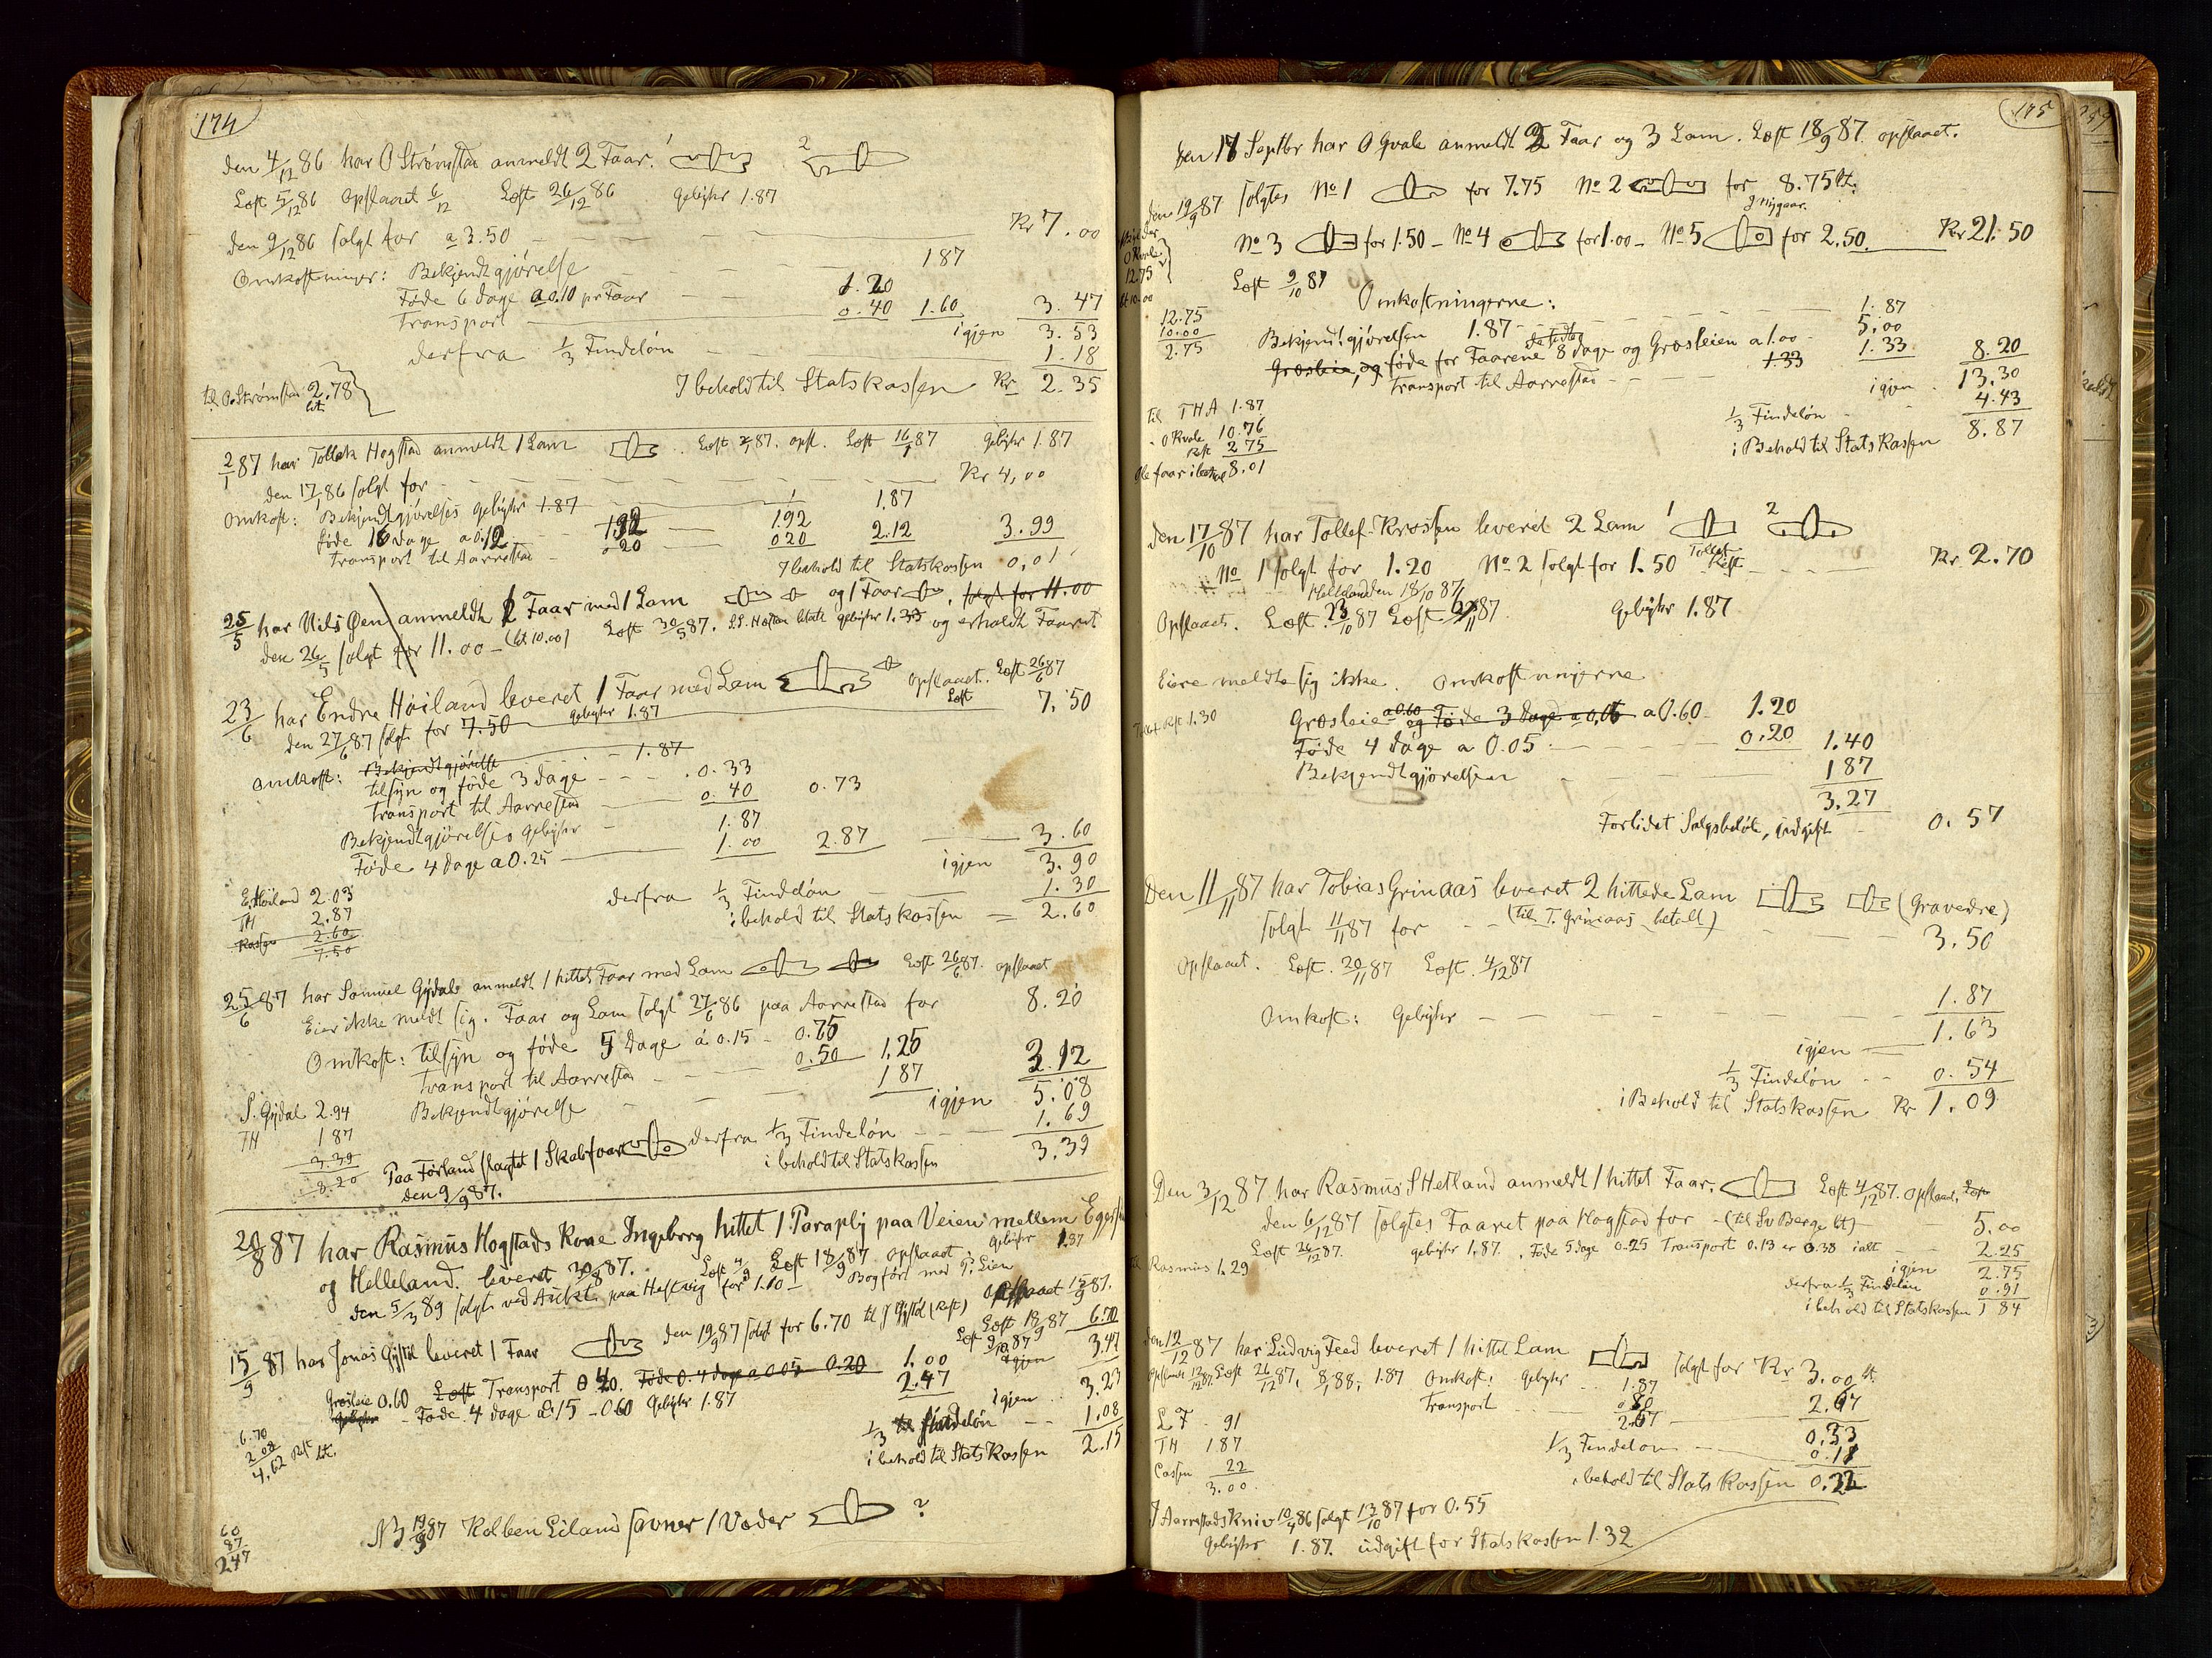 174
den 4/12 86 har O Strømstad anmeldt 2 Faar. 1 2
Læst 5/12 86 opslaaet 6/12 Læst 26/12 86 Gebyhr 1.87
den 9/12 86 solgt for a 3.50 Kr 7.00
Omkostninger: Bekjendtgjørelse 187
Føde 6 dage a 0.10 pr Faar 1.20
Transport 0.40 1.60 3.47
igjen 3.53
derfra 1/3 Findeløn 1.18
I behold til Statskassen Kr 2.35
til O. Strømstad 2.78
bt
2/1 87 har Tollak Hogstad anmeldt 1 Lam Læst 2/1 87. opsl. Læst 16/1 87 Gebyhr 1.87
den 17/1 86 solgt for Kr 4,00
Omkost: Bekjendtgjørelses Gebyhr 1.87 1.87
føde 16 dage a 0.12 1.92 1.92 2.12 3.99
Transport til Aarrestad 0.20 020
I behold til Statskassen 0,01
25/5 har Nils Øen anmeldt 1 Faar med 1 Lam og 1 Faar, solgt for 11.00
den 26/5 solgt for 11.00 - (bt. 10.00) Læst 30/5 87. gebyhr 1.33 og erholdt Faaret
23/6 har Endre Høiland leveret 1 Faar med Lam opslaaet. Læst 26/6 87
den 27/6 87 solgt for 7.50 Gebyhr 1.87 Læst 7.50
Omkost: Bekjendtgjørelse 1.87
tilsyn og føde 3 dage 0.33
Transport til Aarrestad 0.40 0.73
Bekjendtgjørelses Gebyhr 1.87
Føde 4 dage a 0.25 1.00 2.87 3.60
igjen 3.90
derfra 1/3 Findeløn 1.30
i behold til Statskassen = 2.60
E. Høiland 2.03
TH 2.87
Kassen 2.60
7.50
25/6 87 har Samuel Gydal anmeldt 1 hittet Faar med Lam Læst 26/6 87. opslaaet
Eier ikke meldt sig. Faar og Lam solgt 27/6 86 paa Aarrestad for 8.20
Omkost: tilsyn og føde 5 dage á 0.15 - 0.75
Transport til Aarrestad 0.50 1.25
Bekjendtgjørelse 187 3.12
igjen 5.08
derfra 1/3 Findeløn 1.69
i behold til Statskassen 3.39
S. Gydal 2.94
TH 187
3.39
8.20
Paa Førland slagtet 1 Skabfaar
den 9/9 87.
20/8 87 har Rasmus Hogstads Kone Ingeborg hittet 1 Paraply paa Veien mellem Egersu
og Helleland. leveret 30/8 87. Læst 4/9 Læst 18/9 87 opslaaet. Gebyhr 1.87
den 5/3 89 solgt ved Auktn paa Hestvig for 1.10 - Bogført med T. Lien
opslaaet 15/9 87.
15/9 87 har Jonas Gystøl leveret 1 Faar den 19/9 87 solgt for 6.70 til J Gystøl (Rest) Læst 18/9 87 6.70
Læst 9/10 87 3.47
Græsleie 0.60 Læst Transport 0.40. Føde 0.4 dage a 0.05 0.20 1.00 igjen
Gebyhr - Føde 4 dage á 15 - 060 Gebyhr 1.87 2.47 igjen 3.23
1/3 Findeløn 1.08
i behold til Statskassen 2.15
6.70
2.08
4.62 Rest bt.
NB 19/9 87 Kolben Eiland savner 1 Væder ?
60
87
247
175
den 17 Septbr har O Qvale anmeldt 2 Faar og 3 Lam. Læst 18/9 87. opslaaet.
den 19/9 87 solgtes No 1 for 7.75 No 2 for 8.75 bt.
No 3 for 1.50 - No 4 for 1.00 - No 5 for 2.50. Kr 21.50
O Kvale
12.75
bt 10.00
Læst 9/10 87 Omkostningerne:
12.75
10.00
2.75
Bekjendtgjørelsen 1.87 1.87
Græsleie, og føde for Faarene 8 dage og Græsleien a 1.00 5.00
Transport til Aarrestad 1.33 1.33 8.20
igjen 13.30
1/3 Findeløn 4.43
i Behold til Statskassen 8.87
til TH A 1.87
- O Kvale 10.76
Rest 2 75
8.01
den 17/10 87 har Tollef Kråssen leveret 2 Lam 1 2
No 1 solgt for 1.20 No 2 solgt for 1.50 Tollef Rest Kr 2.70
Helleland den 18/10 87
Opslaaet. Læst 23/10 87 Læst 6/11 87 Gebyhr 1.87
Eiere meldte sig ikke. Omkostningerne
Græsleie a 0.60 og Føde 3 dage a 0.05 a 0.60 1.20
Føde 4 dage a 0.05 0.20 1.40
Bekjendtgjørelsen 187
3.27
Forlidet Salgsbeløb, udgift 0.57
Den 11/11 87 har Tobias Grinaas leveret 2 hittede Lam (Gravedre)
solgt 11/11 87 for (til T. Grinaas betalt) 3.50
Opslaaet. Læst. 20/11 87 Læst. 4/12 87
Omkost: Gebyhr 1.87
igjen 1.63
1/3 Findeløn 0.54
i Behold til Statskassen Kr 1.09
Den 3/12 87 har Rasmus S Hetland anmeldt 1 hittet Faar. Læst 4/12 87. Opslaaet.
den 6/12 87 solgtes Faaret paa Hogstad for - (til Sv Berge bt) 5.00
Læst 26/12 87. gebyhr 1.87. Føde 5 dage 0.25 Transport 0.13 er 0.38 ialt 2.25
til Rasmus 1.29
igjen 2.75
derfra 1/3 Findeløn 0.91
i behold til Statskassen 1 84
den 12/12 87 har Ludvig Feed leveret 1 hittet Lam solgt for Kr 3.00 bt.
Opslaaet 12/12 87 Læst 26/12 87, 8/1 88, 1.87 Omkost: Gebyhr 1.87
Transport 0 80 2.67
2.67
0,33
1/3 Findeløn 0.11
i behold til Stats Kassen 0.22
L F - 91
TH 187
Cassen 22
3.00.
I Aarrestads Kniv 10/4 86 solgt 13/10 87 for 0.55
Gebyhr 1.87. udgift for Statskassen 1.32